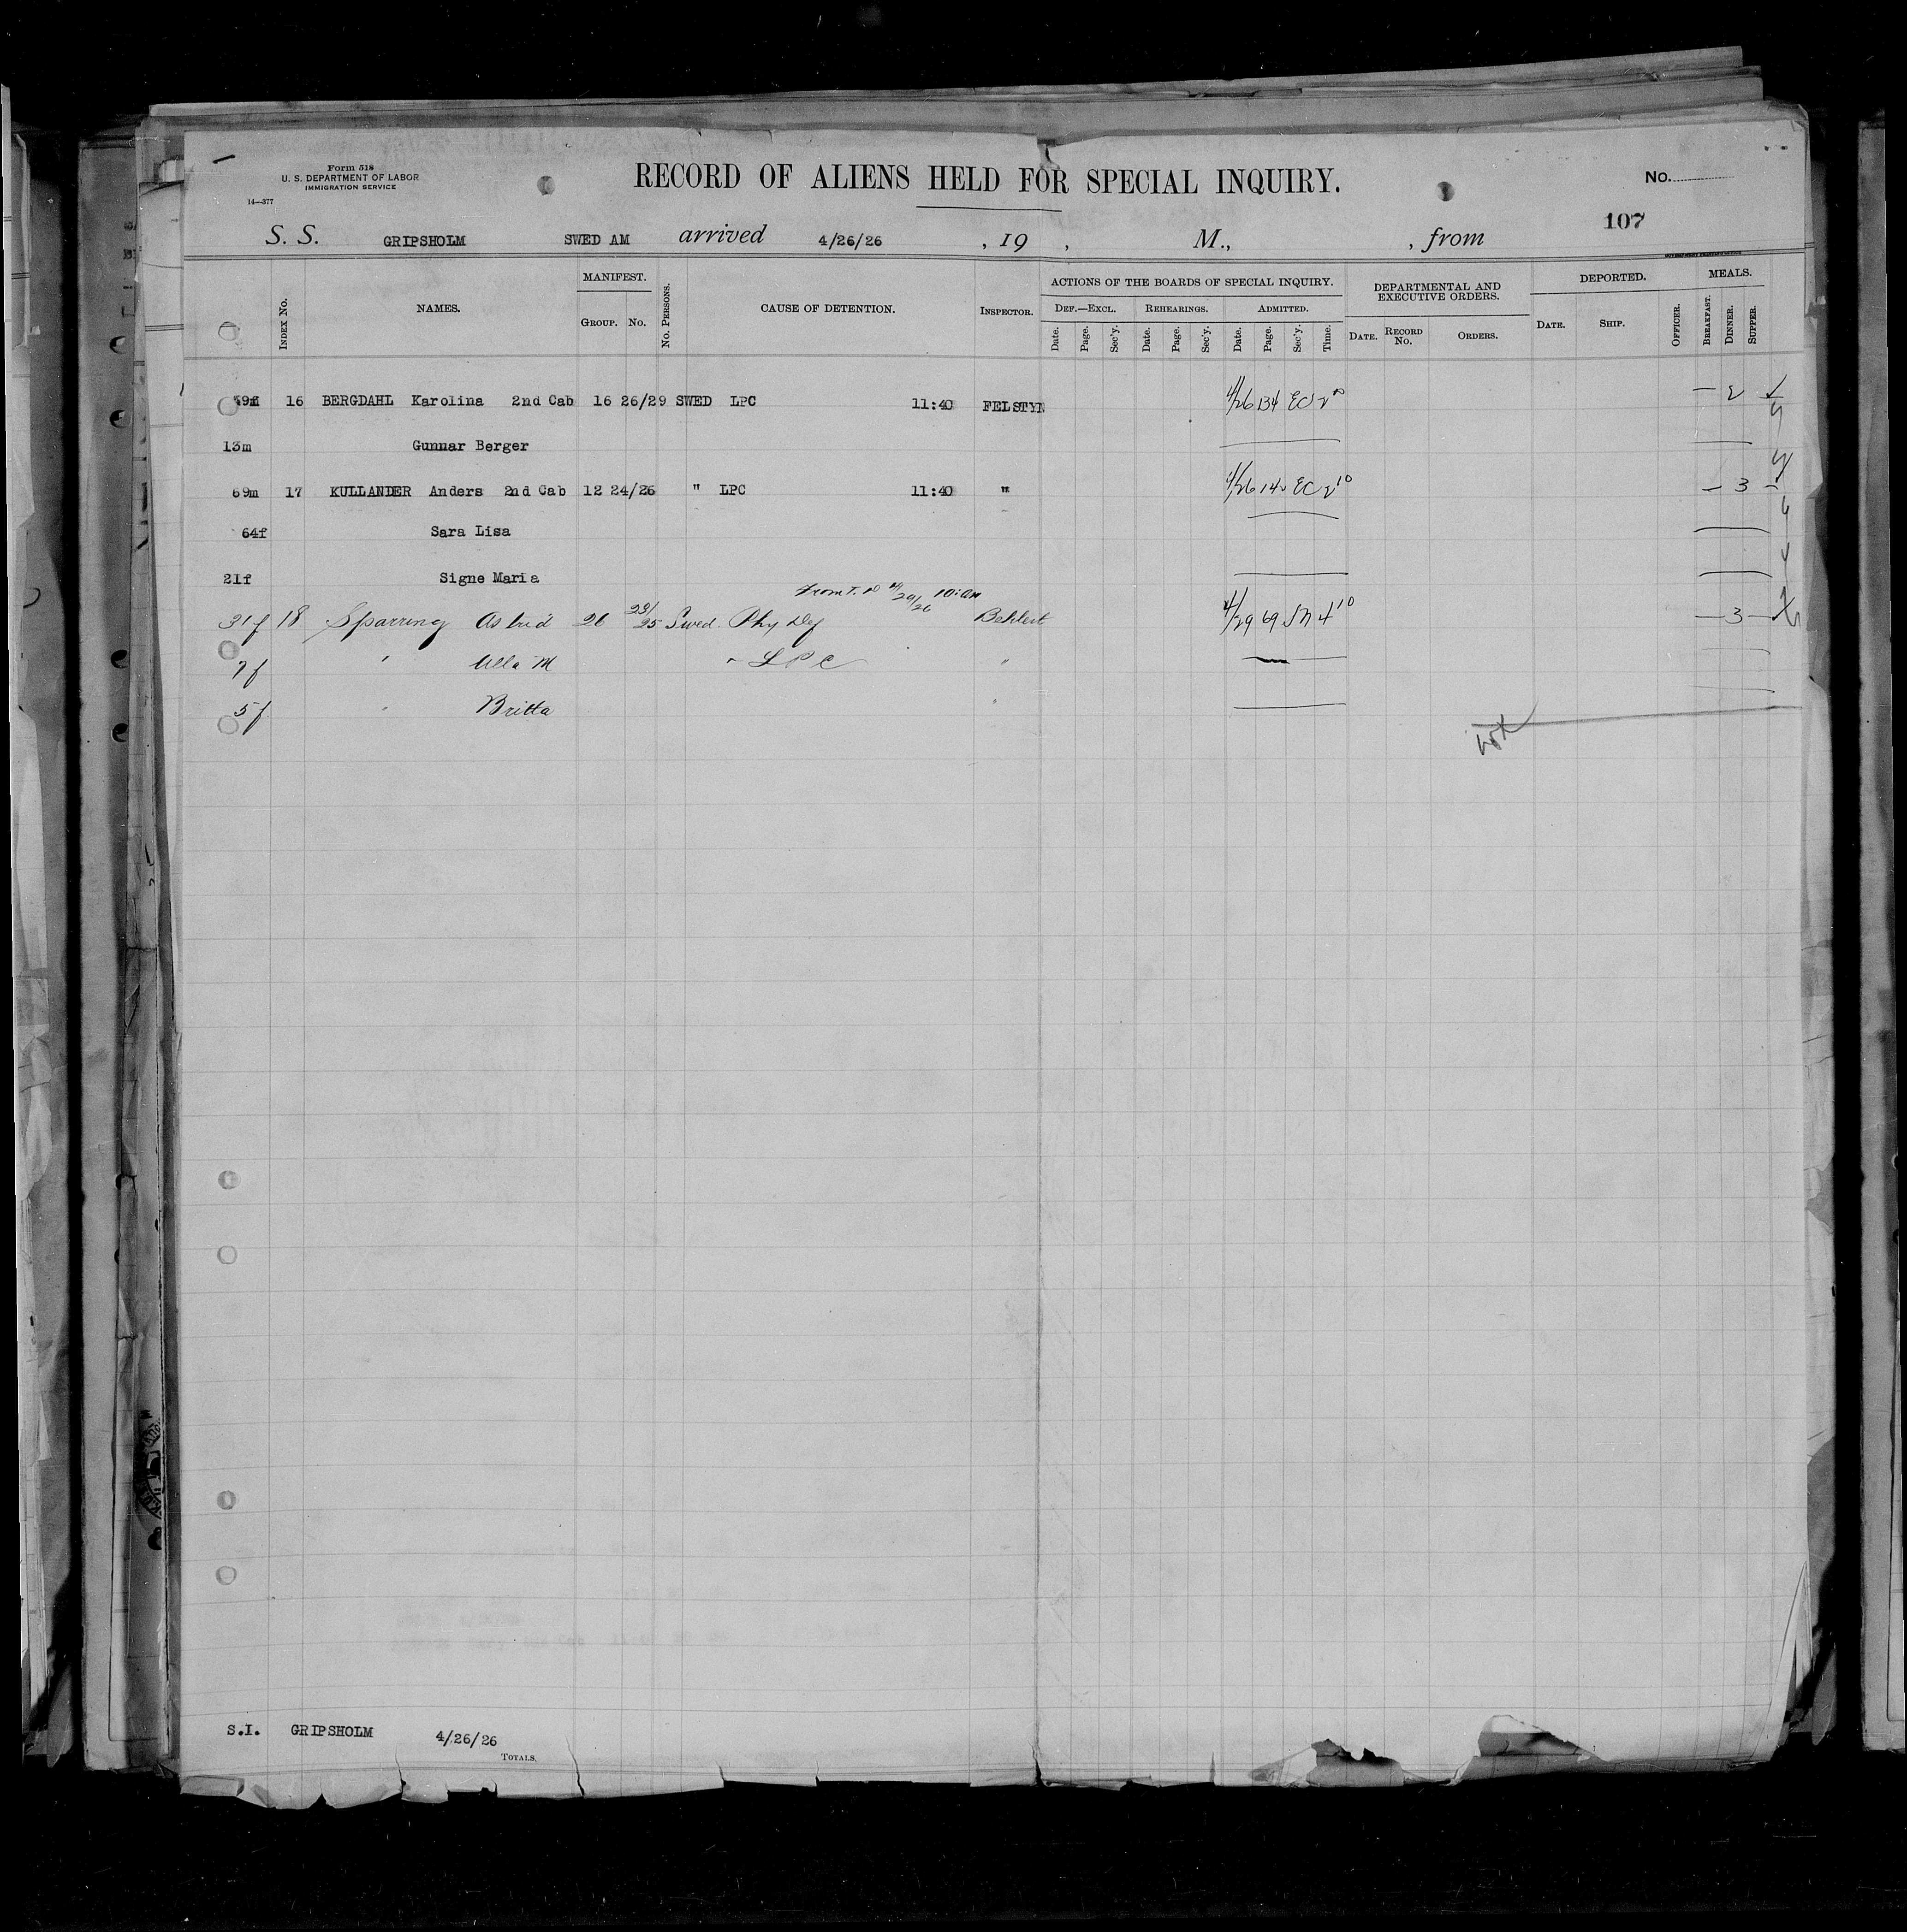 Form 518
U. S. DEPARTMENT OF LABOR
IMMIGRATION SERVICE
14—377
RECORD OF ALIENS HELD FOR SPECIAL INQUIRY.
No.
107
S. S. GRIPSHOLM SWED AM arrived 4/26/26 , 19 , M., , from
INDEX No. NAMES. MANIFEST. GROUP. No. No. PERSONS. CAUSE OF DETENTION. INSPECTOR. ACTIONS OF THE BOARDS OF SPECIAL INQUIRY. DEF.—EXCL. Date. Page. Sec'y. REHEARINGS. Date. Page. Sec'y. ADMITTED. Date. Page. Sec'y. Time. DEPARTMENTAL AND EXECUTIVE ORDERS. DATE. RECORD No. ORDERS. DEPORTED. DATE. SHIP. OFFICER. MEALS. BREAKFAST. DINNER. SUPPER.
16 BERGDAHL Karolina 2nd Cab 16 26/29 SWED LPC 11:40 FELSTYN 4/26 134 EC 2 — 2
13m Gunnar Berger
69m 17 KULLANDER Anders 2nd Cab 12 24/26 " LPC 11:40 " 4/26 EC 2 10 — 3 —
64f Sara Lisa
21f Signe Maria
From T. D 4/29/26 10:am
31f 18 Sparring Astrid 26 23/25 Swed. Phy Def Behlert 4/29 69 4 10 — 3 —
7f " Ulla M " LPC "
5f " Britta "
S.I. GRIPSHOLM 4/26/26
TOTALS,